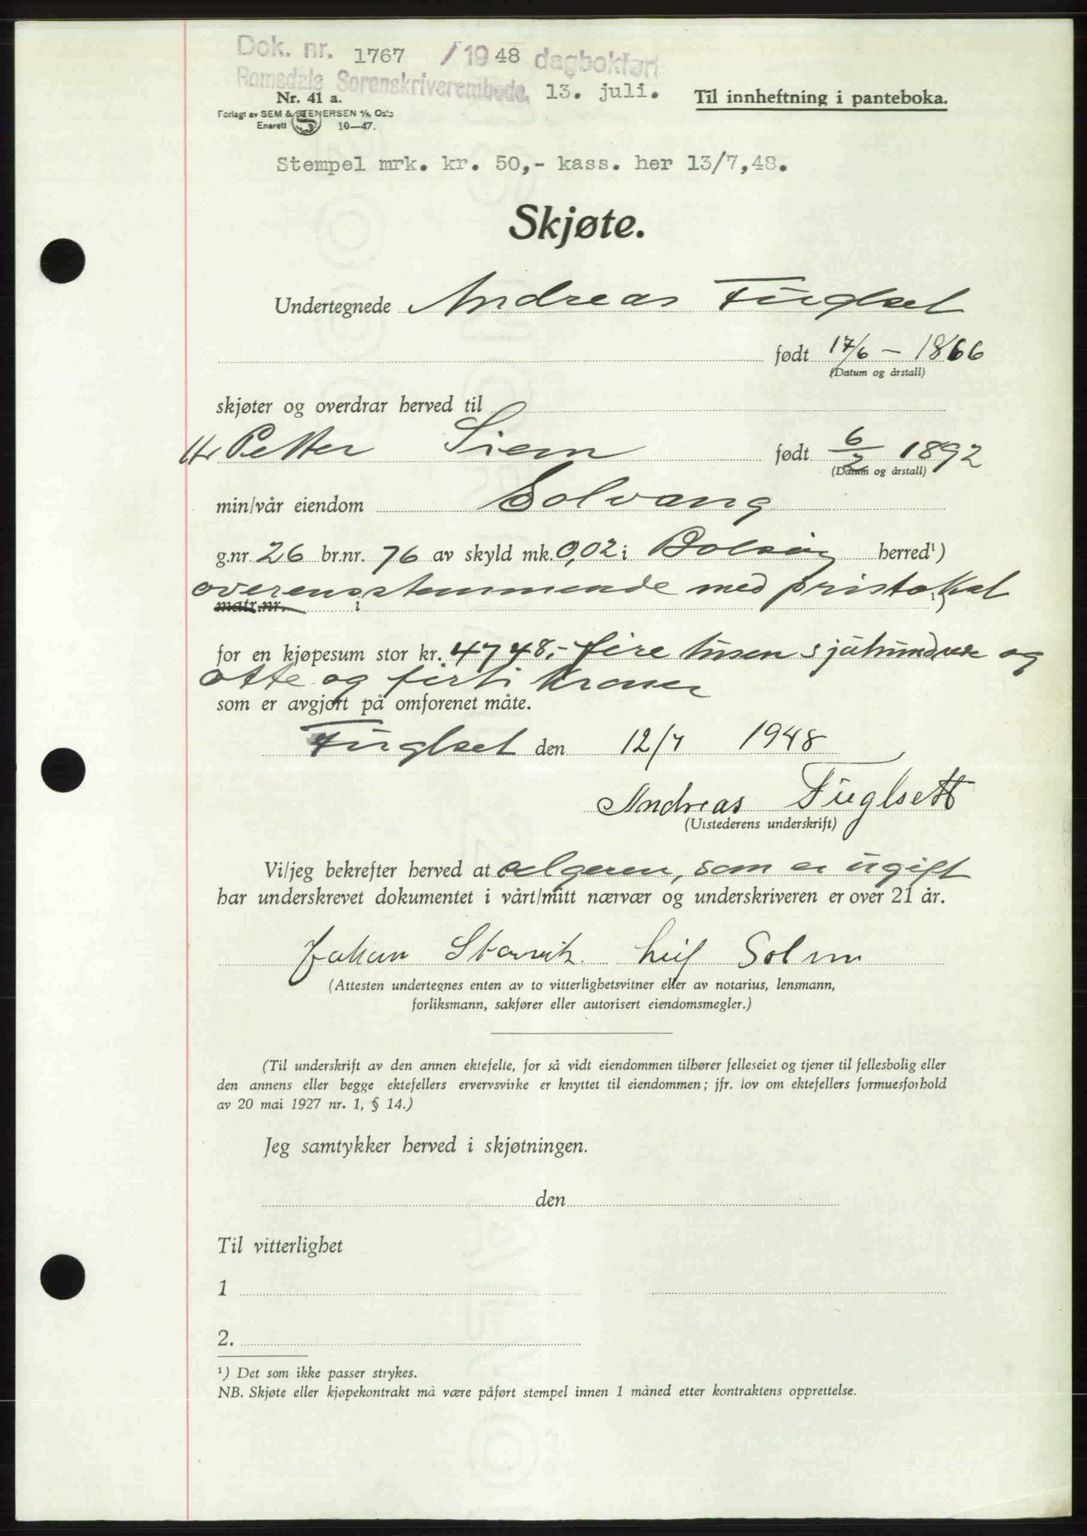 Dok. nr. 1767 /1948 dagbokført
Romsdals Sorenskriverembede, 13. juli.
Til innheftning i panteboka.
Nr. 41 a.
Forlagt av SEM & STENERSEN A/S, Oslo
Enerett 10—47.
Stempel mrk. kr. 50,- kass. her 13/7,48.
Skjøte.
Undertegnede Andreas Fuglset
født 17/6 – 1866
(Datum og årstall)
skjøter og overdrar herved til
Hr Petter Siem født 6/2 1892
(Datum og årstall)
min/vår eiendom Solvang
g.nr. 26 br.nr. 76 av skyld mk. 0,02 i Bolsøy herred¹)
overensstemmende med pristakst
matr.nr. i
for en kjøpesum stor kr. 4748,- fire tusen sjuhundrede og
otte og firti kroner
som er avgjort på omforenet måte.
Fuglset den 12/7 1948
Andreas Fuglsett
(Utstederens underskrift)
Vi/jeg bekrefter herved at selgeren, som er ugift
har underskrevet dokumentet i vårt/mitt nærvær og underskriveren er over 21 år.
Johan Leif
(Attesten undertegnes enten av to vitterlighetsvitner eller av notarius, lensmann,
forliksmann, sakfører eller autorisert eiendomsmegler.)
(Til underskrift av den annen ektefelle, for så vidt eiendommen tilhører felleseiet og tjener til fellesbolig eller
den annens eller begge ektefellers ervervsvirke er knyttet til eiendommen; jfr. lov om ektefellers formuesforhold
av 20 mai 1927 nr. 1, § 14.)
Jeg samtykker herved i skjøtningen.
den
Til vitterlighet
1
2.
¹) Det som ikke passer strykes.
NB. Skjøte eller kjøpekontrakt må være påført stempel innen 1 måned etter kontraktens opprettelse.